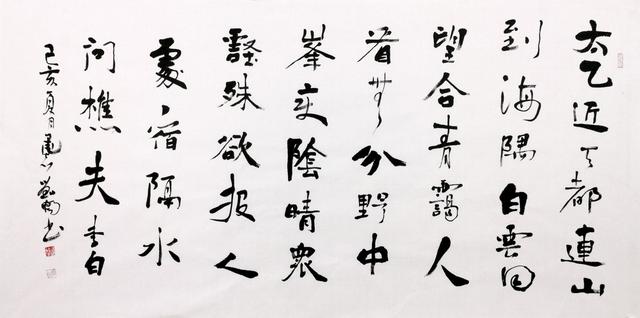 太乙近天都連山
到海隅白雲回
望合青靄入
看無分野中
峯变陰晴眾
壑殊欲投人
處宿隔水
问樵夫李白
己亥夏月书